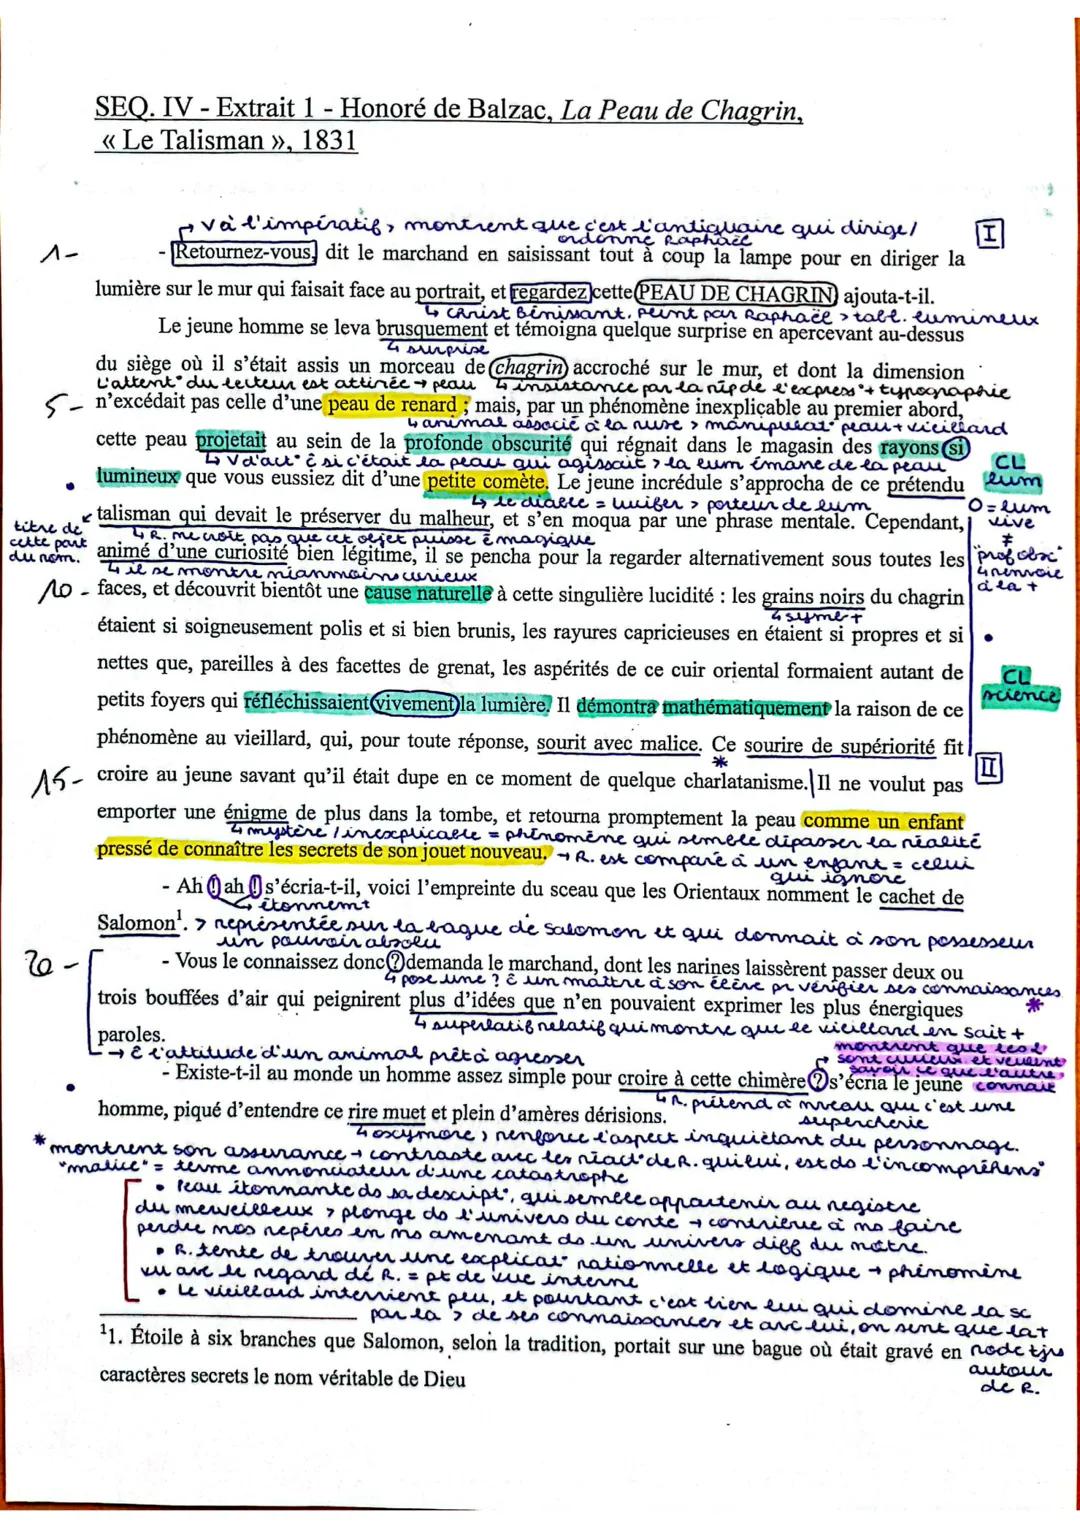 SEQ. IV - Extrait 1 - Honoré de Balzac, La Peau de Chagrin,
« Le Talisman », 1831
→ V à l'impératif, montrent que c'est l'antiquaire qui dirige/
ordonne Raphaël
I
1-
- Retournez-vous, dit le marchand en saisissant tout à coup la lampe pour en diriger la
lumière sur le mur qui faisait face au portrait, et regardez cette PEAU DE CHAGRIN ajouta-t-il.
↳ Christ Bénissant, peint par Raphaël > tabl. lumineux
Le jeune homme se leva brusquement et témoigna quelque surprise en apercevant au-dessus
↳ surprise
du siège où il s'était assis un morceau de chagrin accroché sur le mur, et dont la dimension
L'attent° du lecteur est attirée → peau ↳ insistance par la rép de l'express° + typographie
5-
n'excédait pas celle d'une peau de renard ; mais, par un phénomène inexplicable au premier abord,
↳ animal associé à la ruse > manipulat° peau + vieillard
cette peau projetait au sein de la profonde obscurité qui régnait dans le magasin des rayons si
↳ V d'act° c si c'était la peau qui agissait > la lum émane de la peau
CL
lum
lumineux que vous eussiez dit d'une petite comète. Le jeune incrédule s'approcha de ce prétendu
↳ le diable = lucifer > porteur de lum
O = lum
vive
≠
"prof obsc"
↳ renvoie
à la +
titre de
cette part
du nom.
talisman qui devait le préserver du malheur, et s'en moqua par une phrase mentale. Cependant,
↳ R. ne croit pas que cet objet puisse ê magique
animé d'une curiosité bien légitime, il se pencha pour la regarder alternativement sous toutes les
↳ il se montre néanmoins curieux
10 -
faces, et découvrit bientôt une cause naturelle à cette singulière lucidité : les grains noirs du chagrin
étaient si soigneusement polis et si bien brunis, les rayures capricieuses en étaient si propres et si
nettes que, pareilles à des facettes de grenat, les aspérités de ce cuir oriental formaient autant de
CL
science
petits foyers qui réfléchissaient vivement la lumière. Il démontra mathématiquement la raison de ce
phénomène au vieillard, qui, pour toute réponse, sourit avec malice. Ce sourire de supériorité fit
*
II
15-
croire au jeune savant qu'il était dupe en ce moment de quelque charlatanisme. Il ne voulut pas
emporter une énigme de plus dans la tombe, et retourna promptement la peau comme un enfant
↳ mystère / inexplicable = phénomène qui semble dépasser la réalité
pressé de connaître les secrets de son jouet nouveau. → R. est comparé à un enfant = celui
qui ignore
- Ah ! ah ! s'écria-t-il, voici l'empreinte du sceau que les Orientaux nomment le cachet de
↳ étonnemt
Salomon¹. > représentée sur la bague de Salomon et qui donnait à son possesseur
un pouvoir absolu
20 -
- Vous le connaissez donc ? demanda le marchand, dont les narines laissèrent passer deux ou
↳ pose une ? c un maître à son élève pr vérifier ses connaissances
trois bouffées d'air qui peignirent plus d'idées que n'en pouvaient exprimer les plus énergiques
*
↳ superlatif relatif qui montre que le vieillard en sait +
paroles.
→ c l'attitude d'un animal prêt à agresser
montrent que les 2
sont curieux et veulent
savoir ce que l'autre
connait
- Existe-t-il au monde un homme assez simple pour croire à cette chimère ? s'écria le jeune
↳ R. prétend à nveau que c'est une
supercherie
homme, piqué d'entendre ce rire muet et plein d'amères dérisions.
↳ oxymore, renforce l'aspect inquiétant du personnage.
* montrent son assurance → contraste avec les réact° de R. qui lui, est ds l'incompréhens°
"malice" = terme annonciateur d'une catastrophe
• Peau étonnante ds sa descript°, qui semble appartenir au registre
du merveilleux > plonge ds l'univers du conte → contribue à ns faire
perdre nos repères en ns amenant ds un univers diff du nôtre.
• R. tente de trouver une explicat° rationnelle et logique → phénomène
vu avc le regard de R. = pt de vue interne
• Le vieillard intervient peu, et pourtant c'est bien lui qui domine la sc
par la > de ses connaissances et avc lui, on sent que la +
rode tjrs
autour
de R.
¹1. Étoile à six branches que Salomon, selon la tradition, portait sur une bague où était gravé en
caractères secrets le nom véritable de Dieu